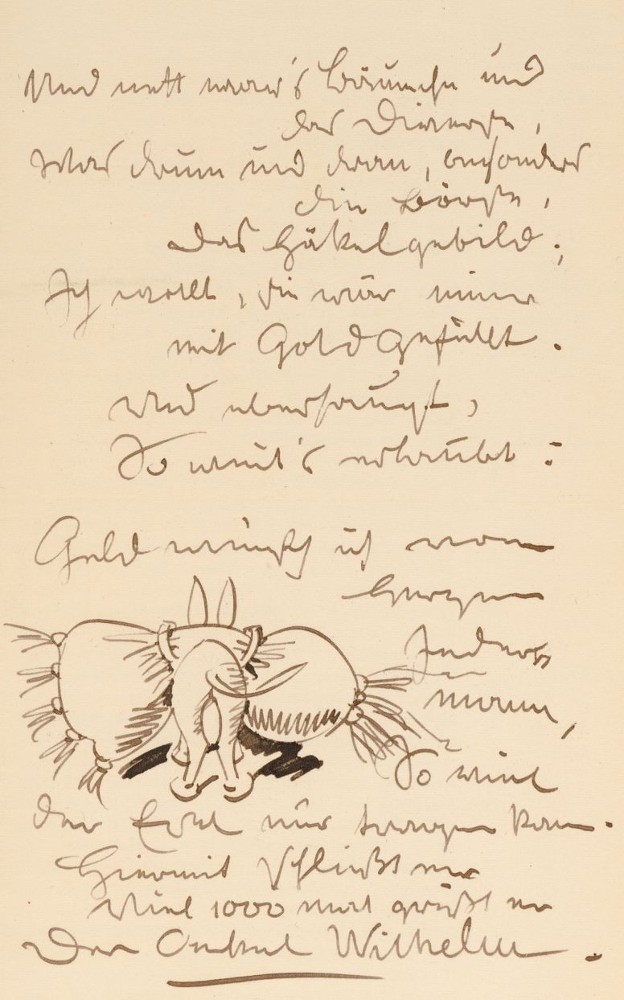 Und nett war's Bäumche und
das Diverse,
Was drum und dran, besonders
die Börse,
das Häkelgebild;
Ich wollt, sie wär immer
mit Gold gefüllt.
Und überhaupt,
So weit's erlaubt:
Geld wünsch ich von
Herzen
Jeder
mann,
So viel
der Esel nur tragen kann.
Hiermit schließt er
Viel 1000 mal grüßt er
Der Onkel Wilhelm.